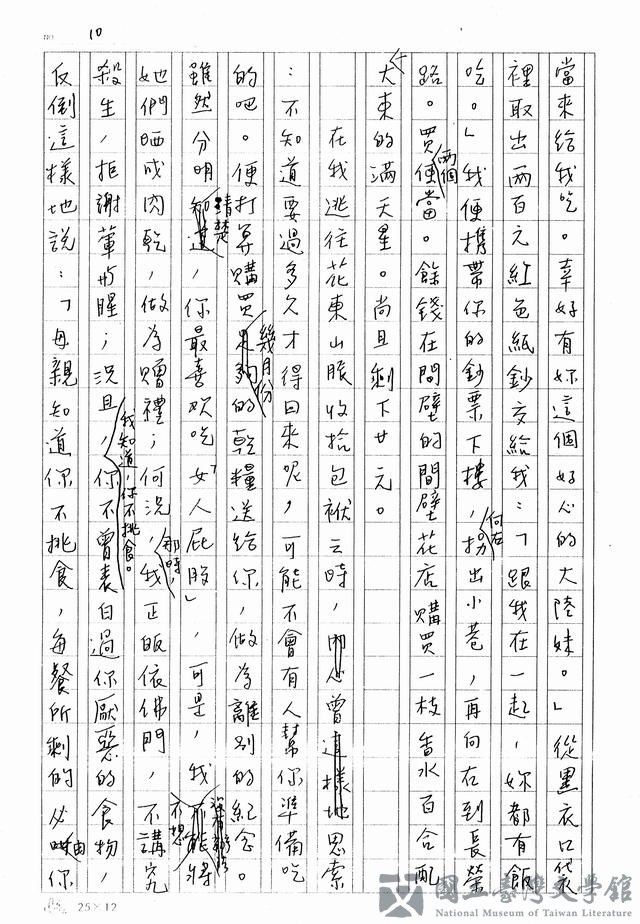 10
當來給我吃。幸好有妳這個好心的大陸妹。」從黑衣口袋
裡取出兩百元紅色紙鈔交給我:「跟我在一起,妳都有飯
吃。」我便攜帶你的鈔票下樓,拐出小巷,再向右到長榮
何右
路。買兩個便當。餘錢在間壁的間壁花店購買一枝香水百合配
大束的滿天星。尚且剩下廿元。
在我逃往花東山脈收拾包袱云時,曾這樣地思索
:不知道要過多久才得回來呢,可能不會有人幫你準備吃
的吧。便打算購買幾月份的乾糧送給你,做為離別的紀念。
雖然分明清楚,你最喜歡吃「女人屁股」,可是,我沒有辦法
不想
她們晒成肉乾,做為贈禮;何況,那時,我正皈依佛門,不講究
殺生,拒謝葷與腥;況且,你不曾表白過你厭惡的食物,
我知道,你不挑食。
反倒這樣地說:「母親知道你不挑食,每餐所剩的必由你
25×12
國立臺灣文學館
National Museum of Taiwan Literature